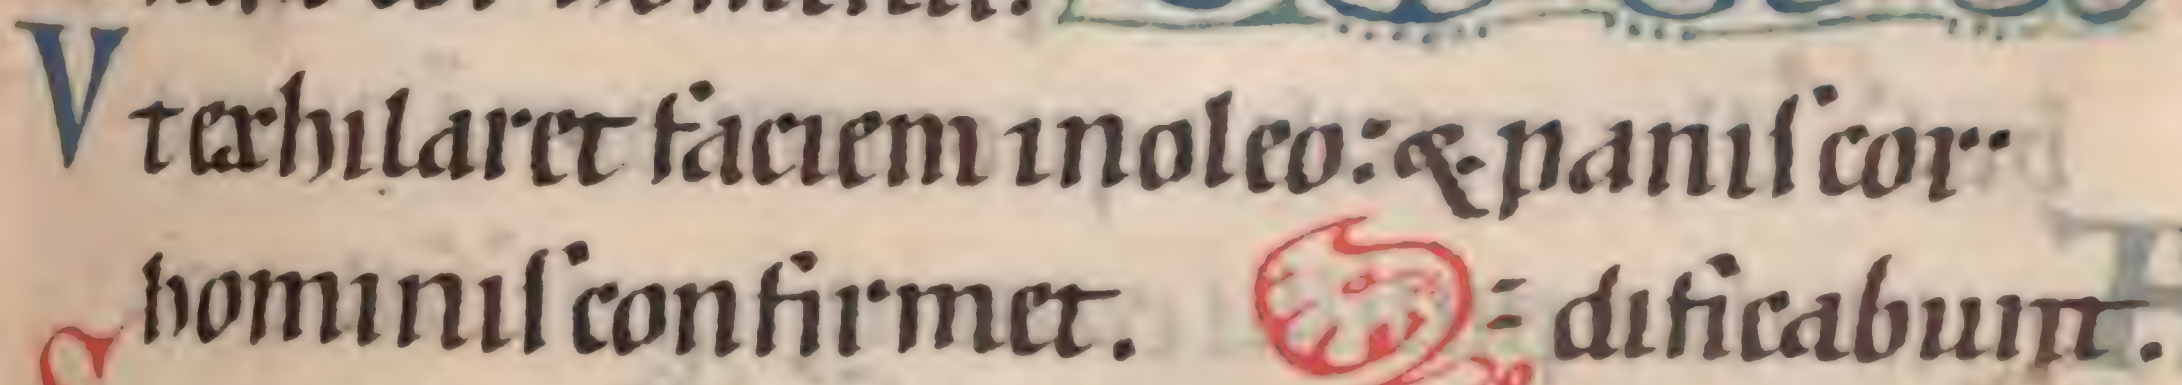 Vt exhilaret faciem in oleo: & panis cor
hominis confirmet. dificabunt.